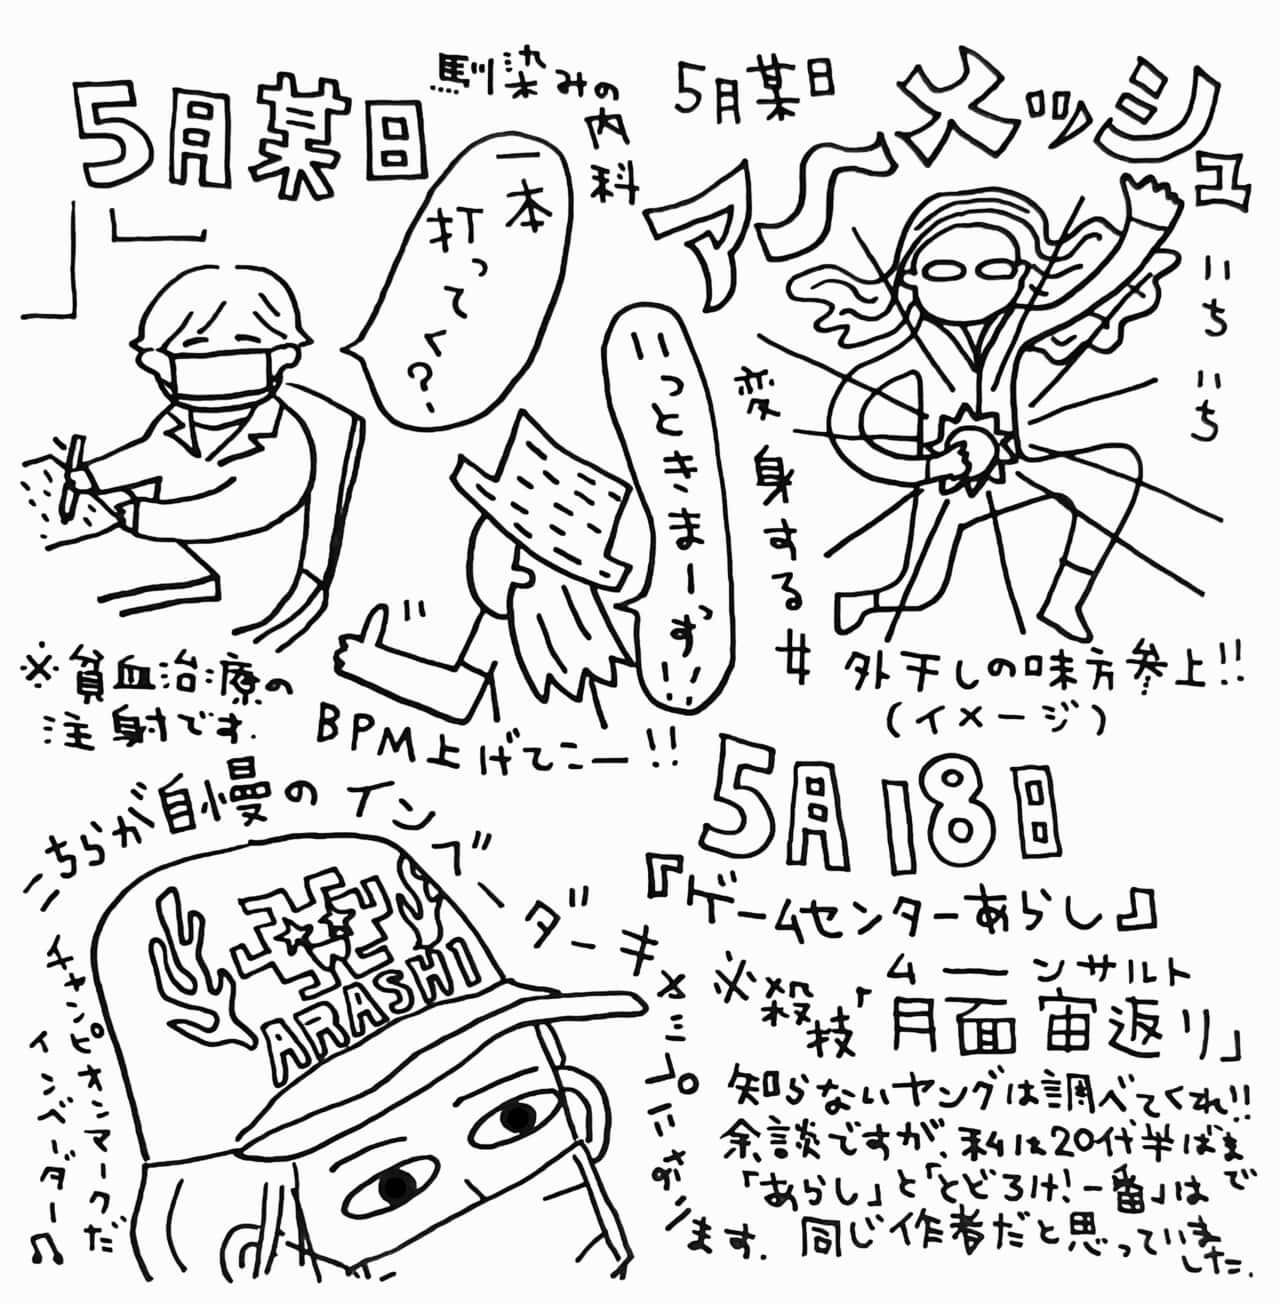 5月某日
馴染みの
内科
一本
打ってく?
いっときまーすっ!!
※貧血治療の
注射です.
BPM上げてこー!!
5月某日
アンメッシュ
いちいち
変身する#
外干しの味方参上!!
(イメージ)
こちらが自慢のインベーダーキャップでございます.
ARASHI
チャンピオンマークだ
インベーダー♫
5月18日
『ゲームセンターあらし』
ムーンサルト
必殺技「月面宙返り」
知らないヤングは調べてくれ!!
余談ですが、私は20代半ばまで
「あらし」と「とどろけ!一番」は
同じ作者だと思っていました.